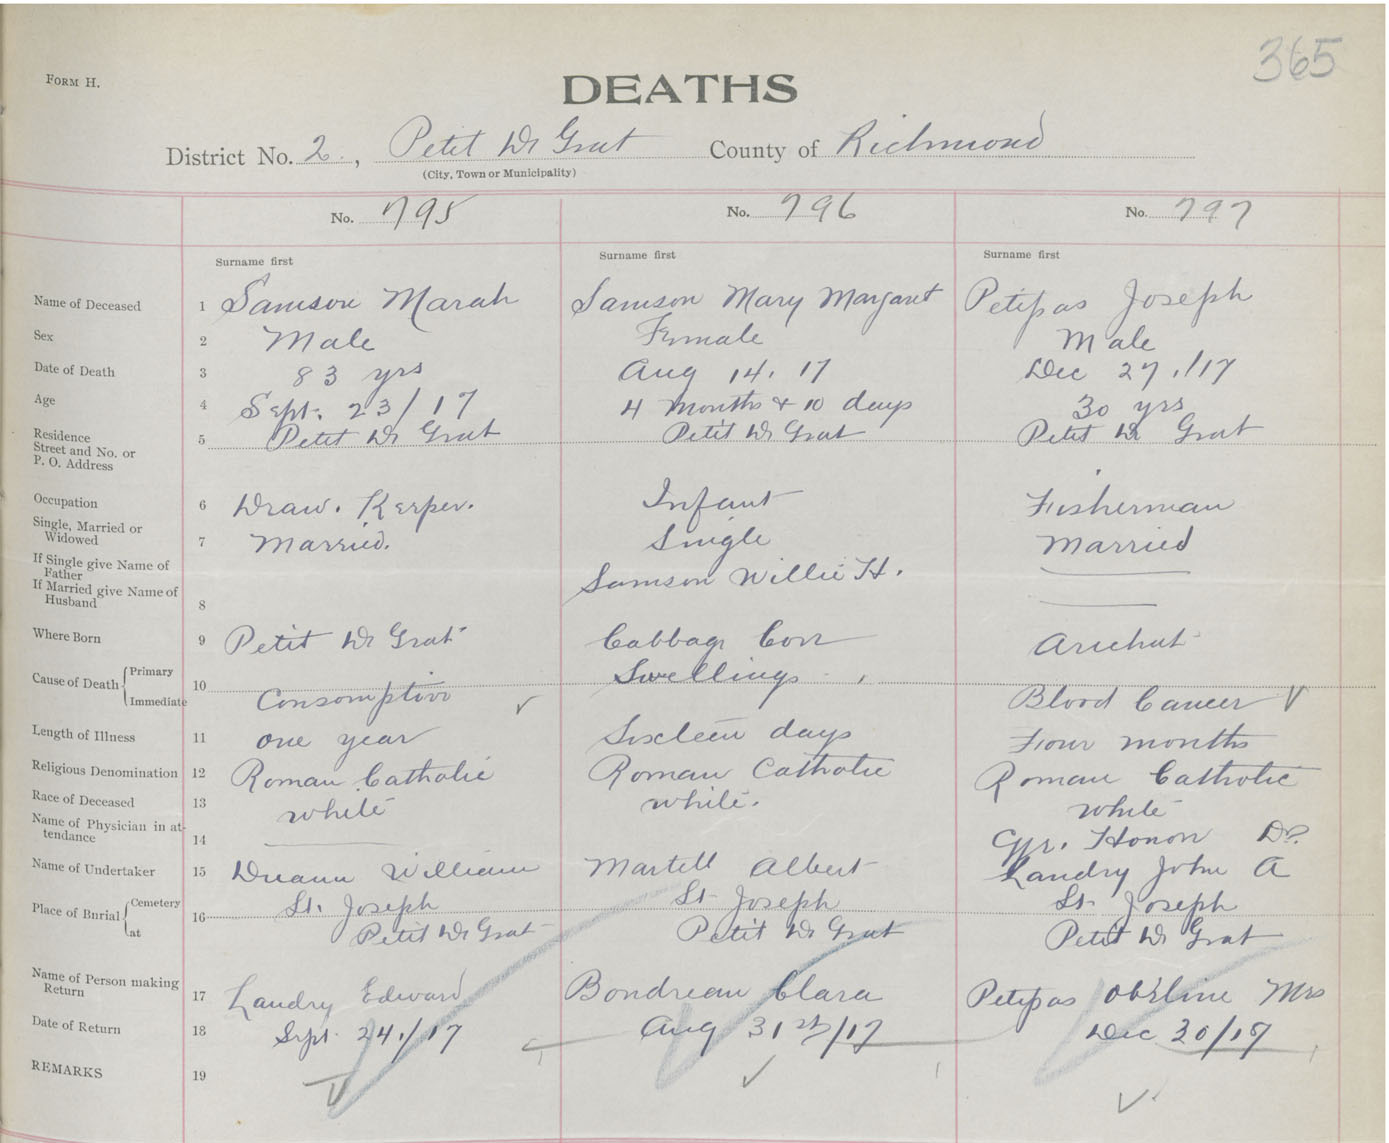 365
FORM H.
DEATHS
District No. 2., Petit De Grat County of Richmond
(City, Town or Municipality)
No. 795 No. 796 No. 797
Surname first Surname first Surname first
Name of Deceased 1 Samson Marah Samson Mary Margaret Petipas Joseph
Sex 2 Male Female Male
Date of Death 3 83 yrs Aug 14. 17 Dec 27./17
Age 4 Sept. 23/17 4 months & 10 days 30 yrs
Residence Street and No. or P. O. Address 5 Petit De Grat Petit De Grat Petit De Grat
Occupation 6 Draw. Keeper. Infant Fisherman
Single, Married or Widowed 7 Married. Single Married
If Single give Name of Father Samson Willie H.
If Married give Name of Husband 8
Where Born 9 Petit De Grat Cabbag Cove Arichat
Cause of Death { Primary 10 Swellings
Immediate Consomption Blood Cancer
Length of Illness 11 one year Sixteen days Four months
Religious Denomination 12 Roman Catholic Roman Catholic Roman Catholic
Race of Deceased 13 white white. white
Name of Physician in attendance 14 Honor Dr
Name of Undertaker 15 William Martell Albert Landry John A
Place of Burial { Cemetery 16 St. Joseph St Joseph St Joseph
at Petit De Grat Petit De Grat Petit De Grat
Name of Person making Return 17 Landry Edward Bondreau Clara Petipas Mrs
Date of Return 18 Sept 24./17 Aug 31st/17 Dec 30/17
REMARKS 19